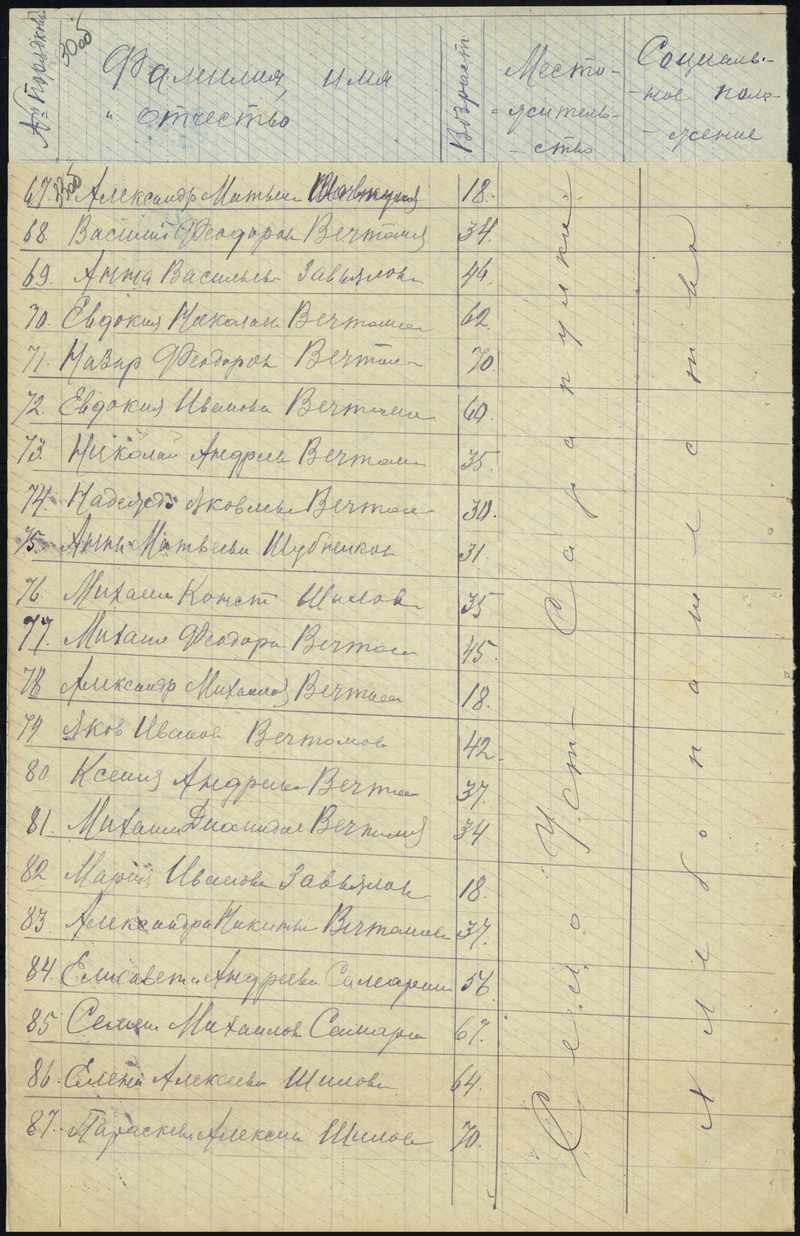 № Порядков
30об
Фамилия, имя
и отчество
Возраст
Место-
жительь-
ство
Социаль-
-ное поло-
-жение
67. Александр Матвеи 18.
68. Василий Феодоров Вечтомов 34.
69. Анна Васильев Завьялов 46.
70. Евдокия Николаи Вечтомов 62.
71. Назар Феодоров Вечтом 70.
72. Евдокия Иванова Вечтом 60.
73. Николай Андрее Вечтом 35.
74. Надежда Яковлев Вечтом 30.
75. Анна Матвеева Шубников 31
76. Михаил Конст Шилов 35
77. Михаил Феодоров Вечтом 45.
78. Александр Михайлов Вечтом 18.
79 Яков Иванов Вечтомов 42.
80 Ксения Андреев Вечтом 37.
81. Михаил Вечтомов 34
82 Мария Иванова Завьялов 18.
83 Александра Никитин Вечтомов 37.
84. Елисавета Андреева Самарин 56.
85 Семен Михаилов Самари 67.
86. Елена Алексеева Шилова 64.
87. Параскева Алексии Шилов 70.
Село Уст-Сарапулка
Хлебопашество